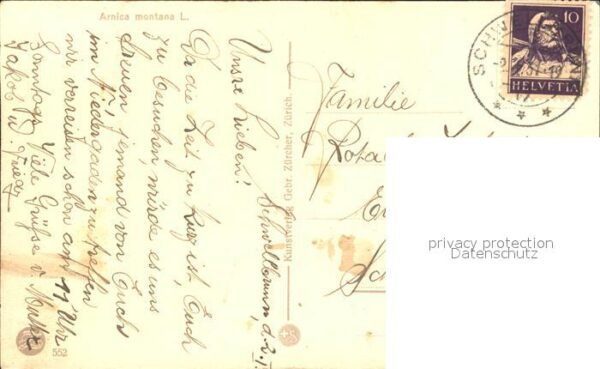 Arnica montana L.
Schwellbrunn, d. 2.
Unsre Lieben!
Da die Zeit zu kurz ist, Euch
zu besuchen, würde es uns
freuen jemand von Euch
im Niedergaden zu treffen
wir verreisen schon am 11 Uhr
Sonntag. Viele Grüsse v.
Jakob u. Frieda
552
Kunstverlag Gebr. Zürcher, Zürich.
10
HELVETIA
Familie
privacy protection
Datenschutz